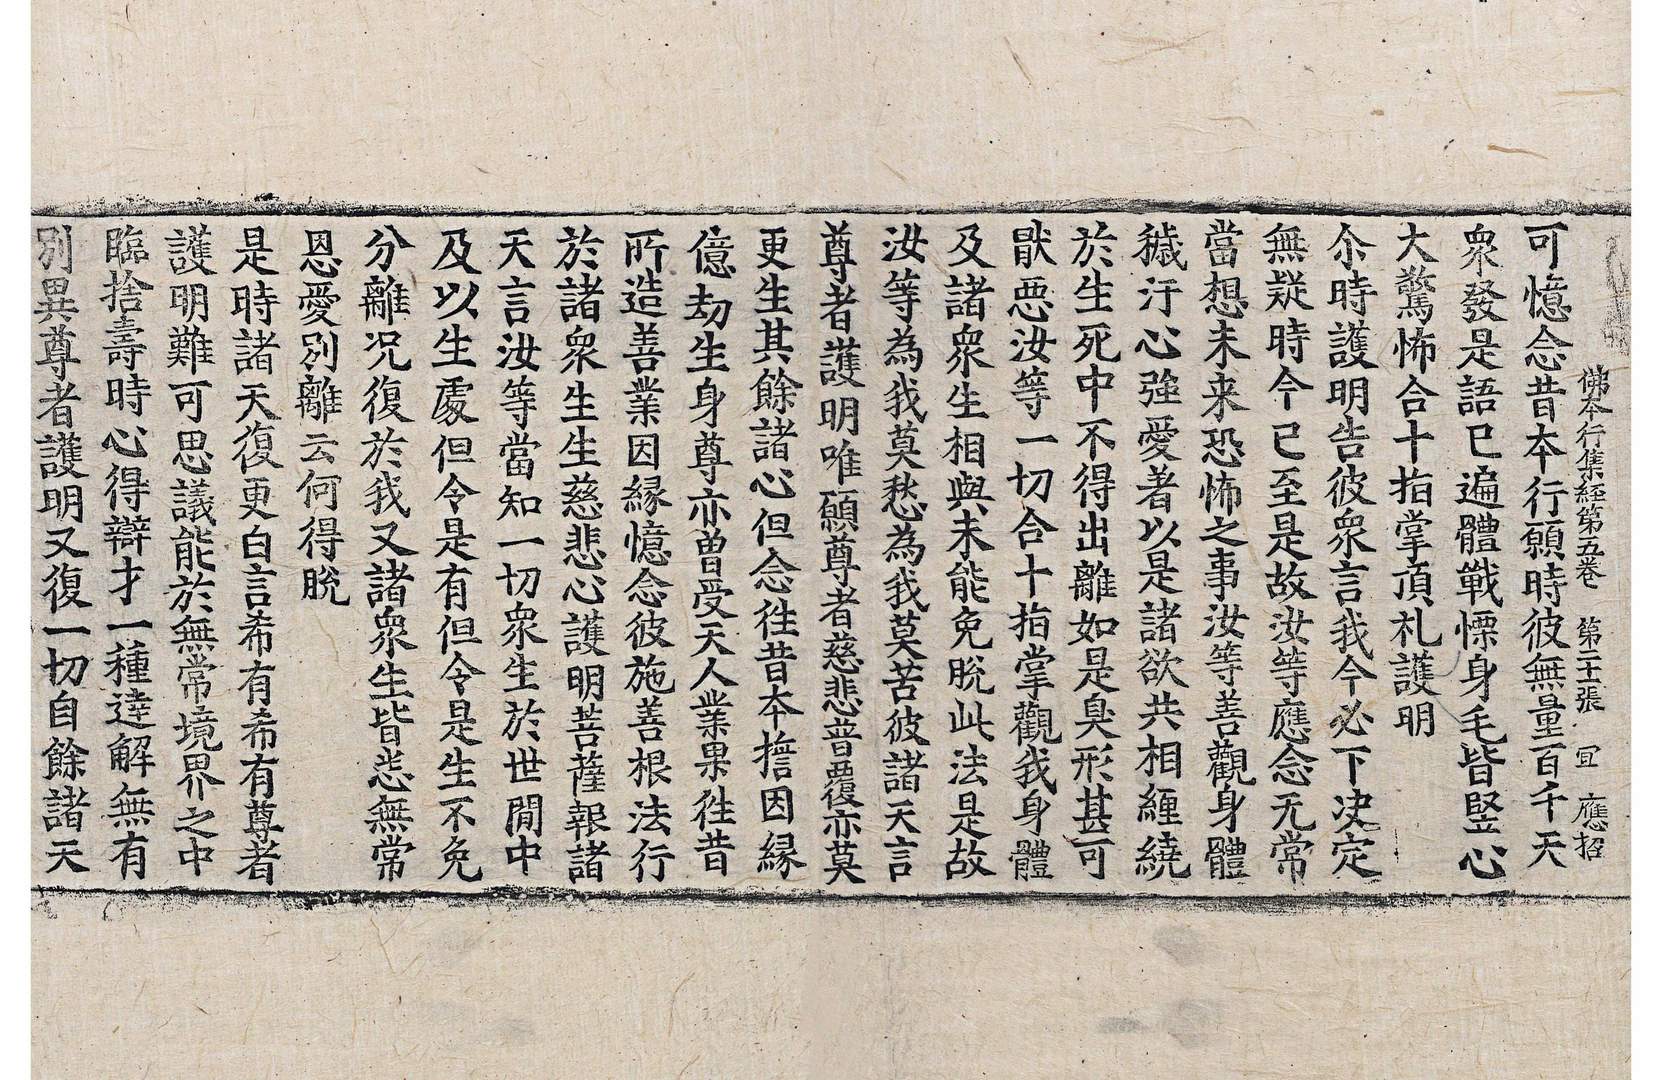 佛本行集経第五卷 第二十一張 冝 應招
可憶念昔本行願時彼無量百千天
衆發是語已遍體戰慄身毛皆竪心
大驚怖合十指掌頂礼護明
尒時護明告彼衆言我今必下决定
無疑時今已至是故汝等應念无常
當想未来恐怖之事汝等善觀身體
穢汙心强愛著以是諸欲共相纏繞
於生死中不得出離如是臭形甚可
猒惡汝等一切合十指掌觀我身體
及諸衆生相與未能免脫此法是故
汝等為我莫愁為我莫苦彼諸天言
尊者護明唯願尊者慈悲普覆亦莫
更生其餘諸心但念往昔本擔因縁
億劫生身尊亦曾受天人業果往昔
所造善業因縁憶念彼施善根法行
於諸衆生生慈悲心護明菩薩報諸
天言汝等當知一切衆生於世間中
及以生處但令是有但令是生不免
分離况復於我又諸衆生皆悲無常
恩愛別離云何得脫
是時諸天復更白言希有希有尊者
護明難可思議能於無常境界之中
臨捨壽時心得辯才一種達解無有
別異尊者護明又復一切自餘諸天